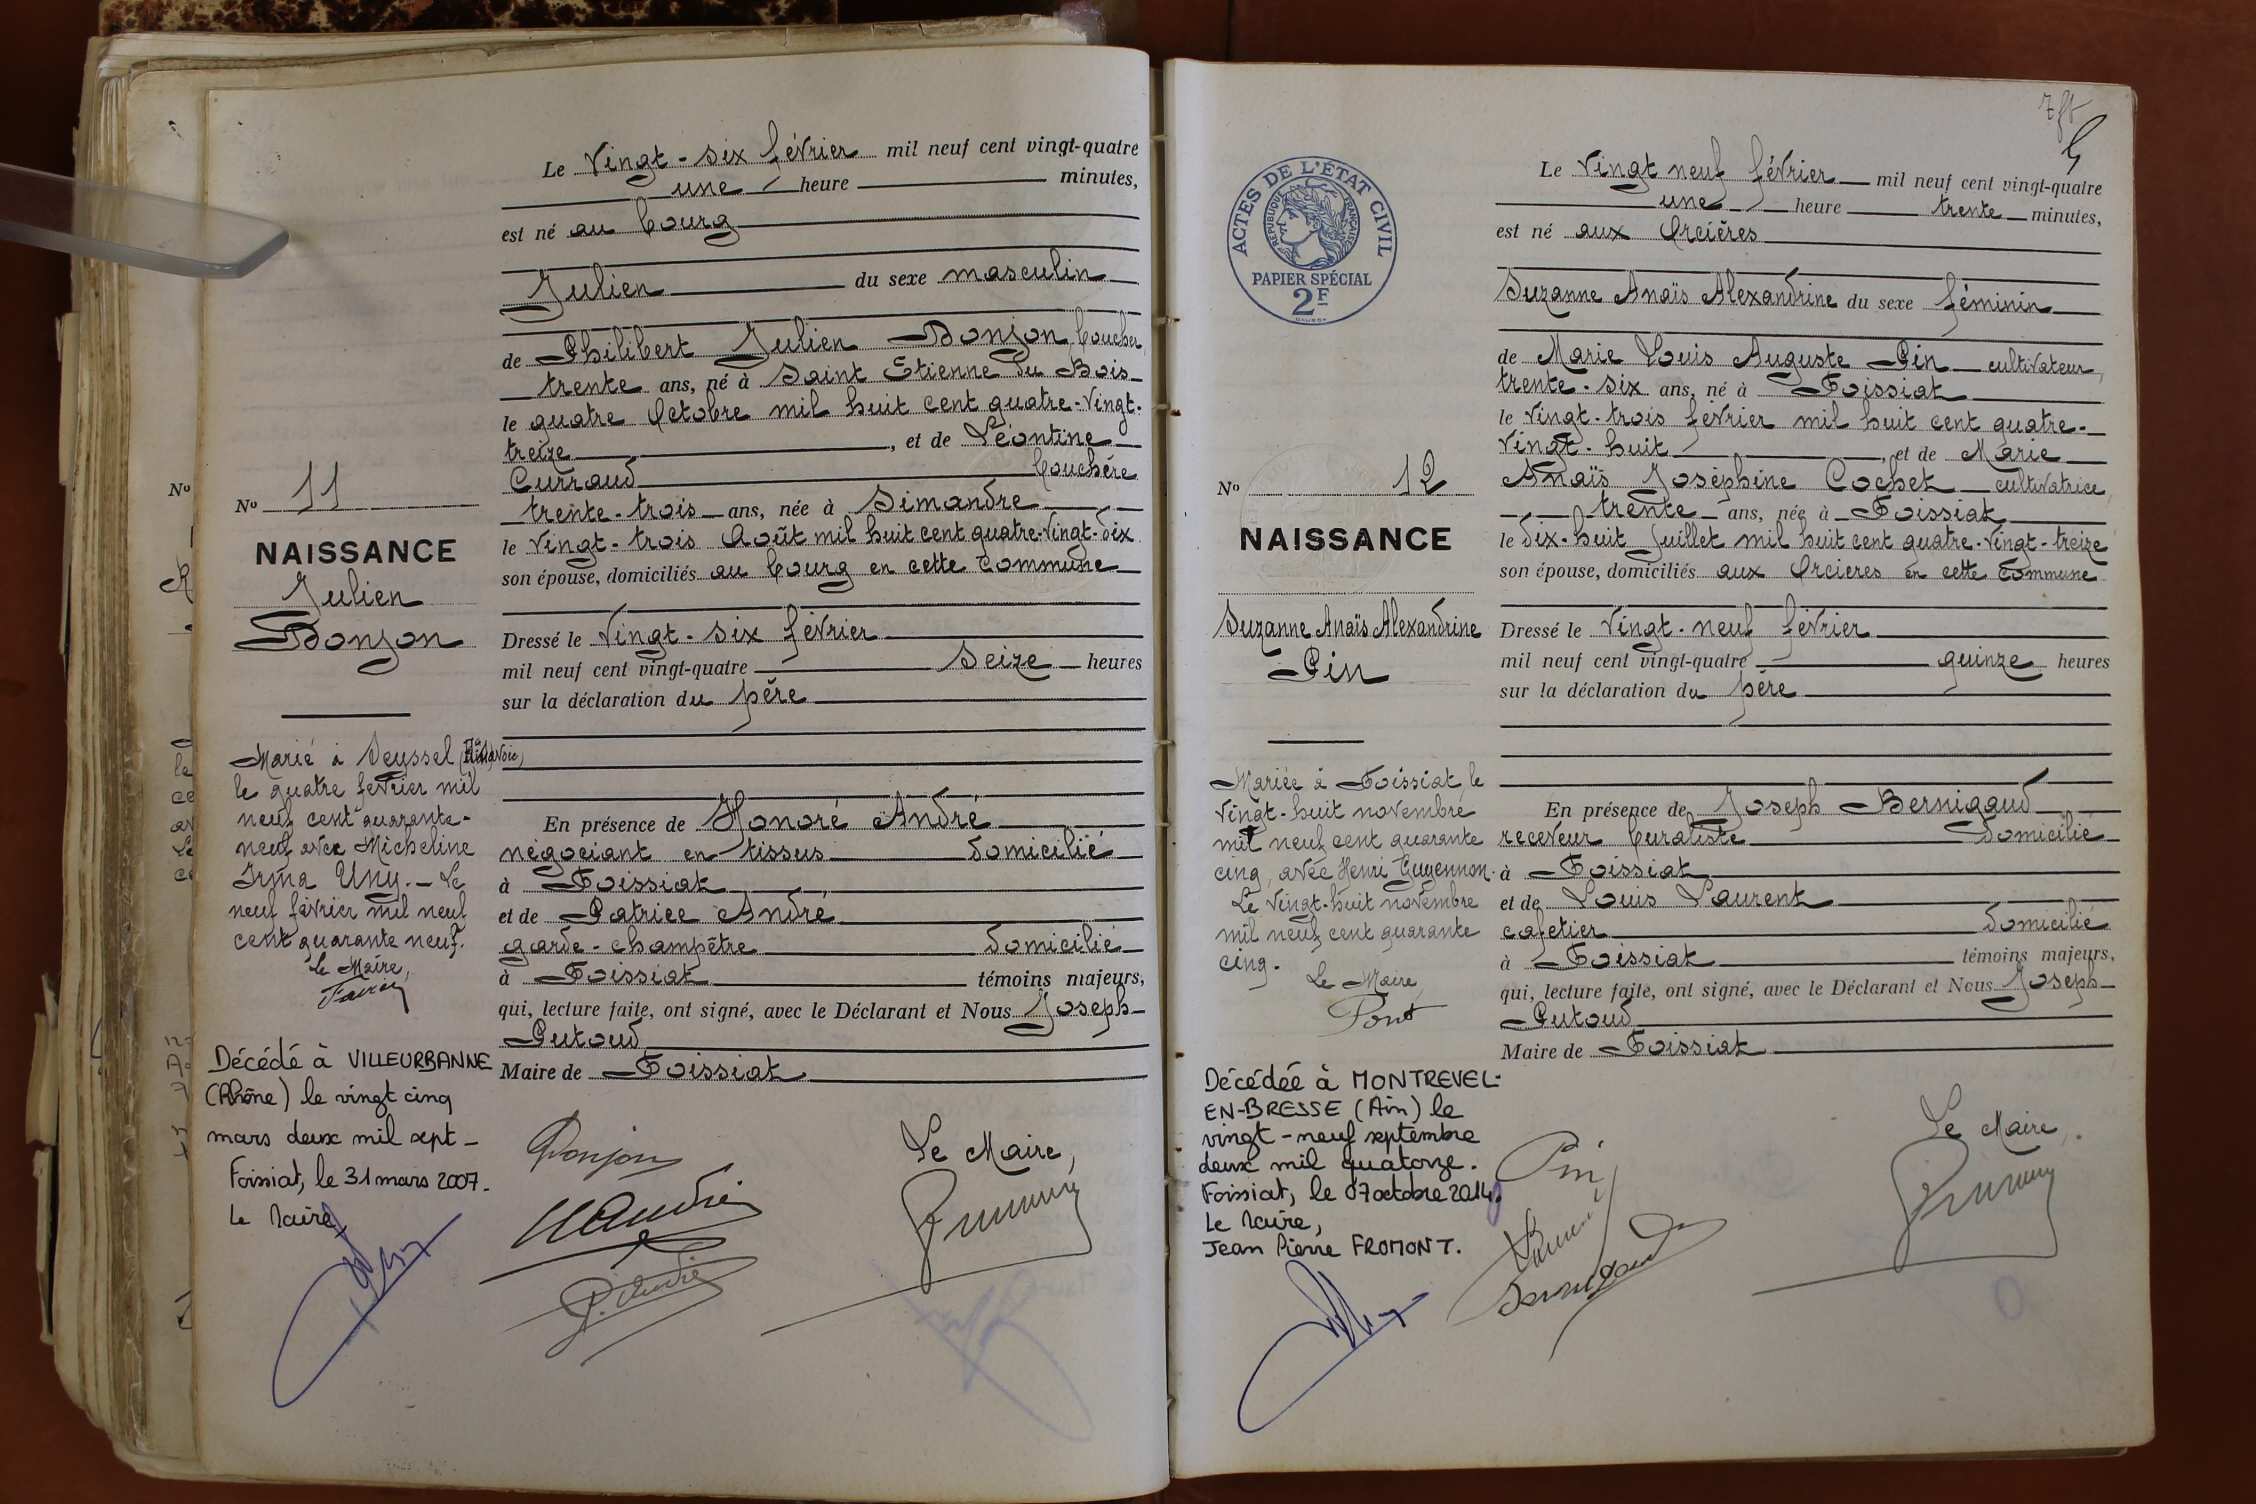 Le Vingt-six février mil neuf cent vingt-quatre
une heure minutes,
est né au bourg
Julien du sexe masculin
de Philibert Julien Donjon, boucher
trente ans, né à Saint Etienne du Bois
le quatre Octobre mil huit cent quatre-vingt-
treize, et de Léontine
Curraud bouchère
trente-trois ans, née à Simandre
le vingt-trois Août mil huit cent quatre-vingt-dix
son épouse, domiciliés au bourg en cette commune
Dressé le vingt-six février
mil neuf cent vingt-quatre seize heures
sur la déclaration du père
En présence de Honoré André
négociant en tissus domicilié
à Foissiat
et de Patrice André
garde-champêtre domicilié
à Foissiat témoins majeurs,
qui, lecture faite, ont signé, avec le Déclarant et Nous Joseph
Putoud
Maire de Foissiat
Donjon
H André
P. André
Le Maire,
No
No 11
NAISSANCE
Julien
Donjon
Marié à Seyssel (Hte Savoie)
le quatre février mil
neuf cent quarante-
neuf avec Micheline
Irma Uny. - Le
neuf février mil neuf
cent quarante neuf.
Le Maire,
Décédé à VILLEURBANNE
(Rhône) le vingt cinq
mars deux mil sept -
Foissiat, le 31 mars 2007.
Le Maire,
ACTES DE L'ÉTAT CIVIL
RÉPUBLIQUE FRANÇAISE
PAPIER SPÉCIAL
2F
Le Vingt neuf février mil neuf cent vingt-quatre
une heure trente minutes,
est né aux Orcières
Suzanne Anaïs Alexandrine du sexe féminin
de Marie Louis Auguste Pin cultivateur,
trente-six ans, né à Foissiat
le vingt-trois février mil huit cent quatre-
vingt-huit, et de Marie
Anaïs Joséphine Cochet cultivatrice,
trente ans, née à Foissiat
le dix-huit Juillet mil huit cent quatre-vingt-treize
son épouse, domiciliés aux Orcieres en cette commune
Dressé le vingt-neuf février
mil neuf cent vingt-quatre quinze heures
sur la déclaration du père
En présence de Joseph Bernigaud
receveur buraliste domicilié
à Foissiat
et de Louis Laurent
cafetier domicilié
à Foissiat témoins majeurs,
qui, lecture faite, ont signé, avec le Déclarant et Nous Joseph
Putoud
Maire de Foissiat
Pin
Laurent
Bernigaud
Le Maire,
No 12
NAISSANCE
Suzanne Anaïs Alexandrine
Pin
Mariée à Foissiat le
vingt-huit novembre
mil neuf cent quarante
cinq, avec Henri Guyennon.
Le vingt-huit novembre
mil neuf cent quarante
cinq.
Le Maire,
Pont
Décédée à MONTREVEL-
EN-BRESSE (Ain) le
vingt-neuf septembre
deux mil quatorze.
Foissiat, le 07 octobre 2014.
Le Maire,
Jean Pierre FROMONT.